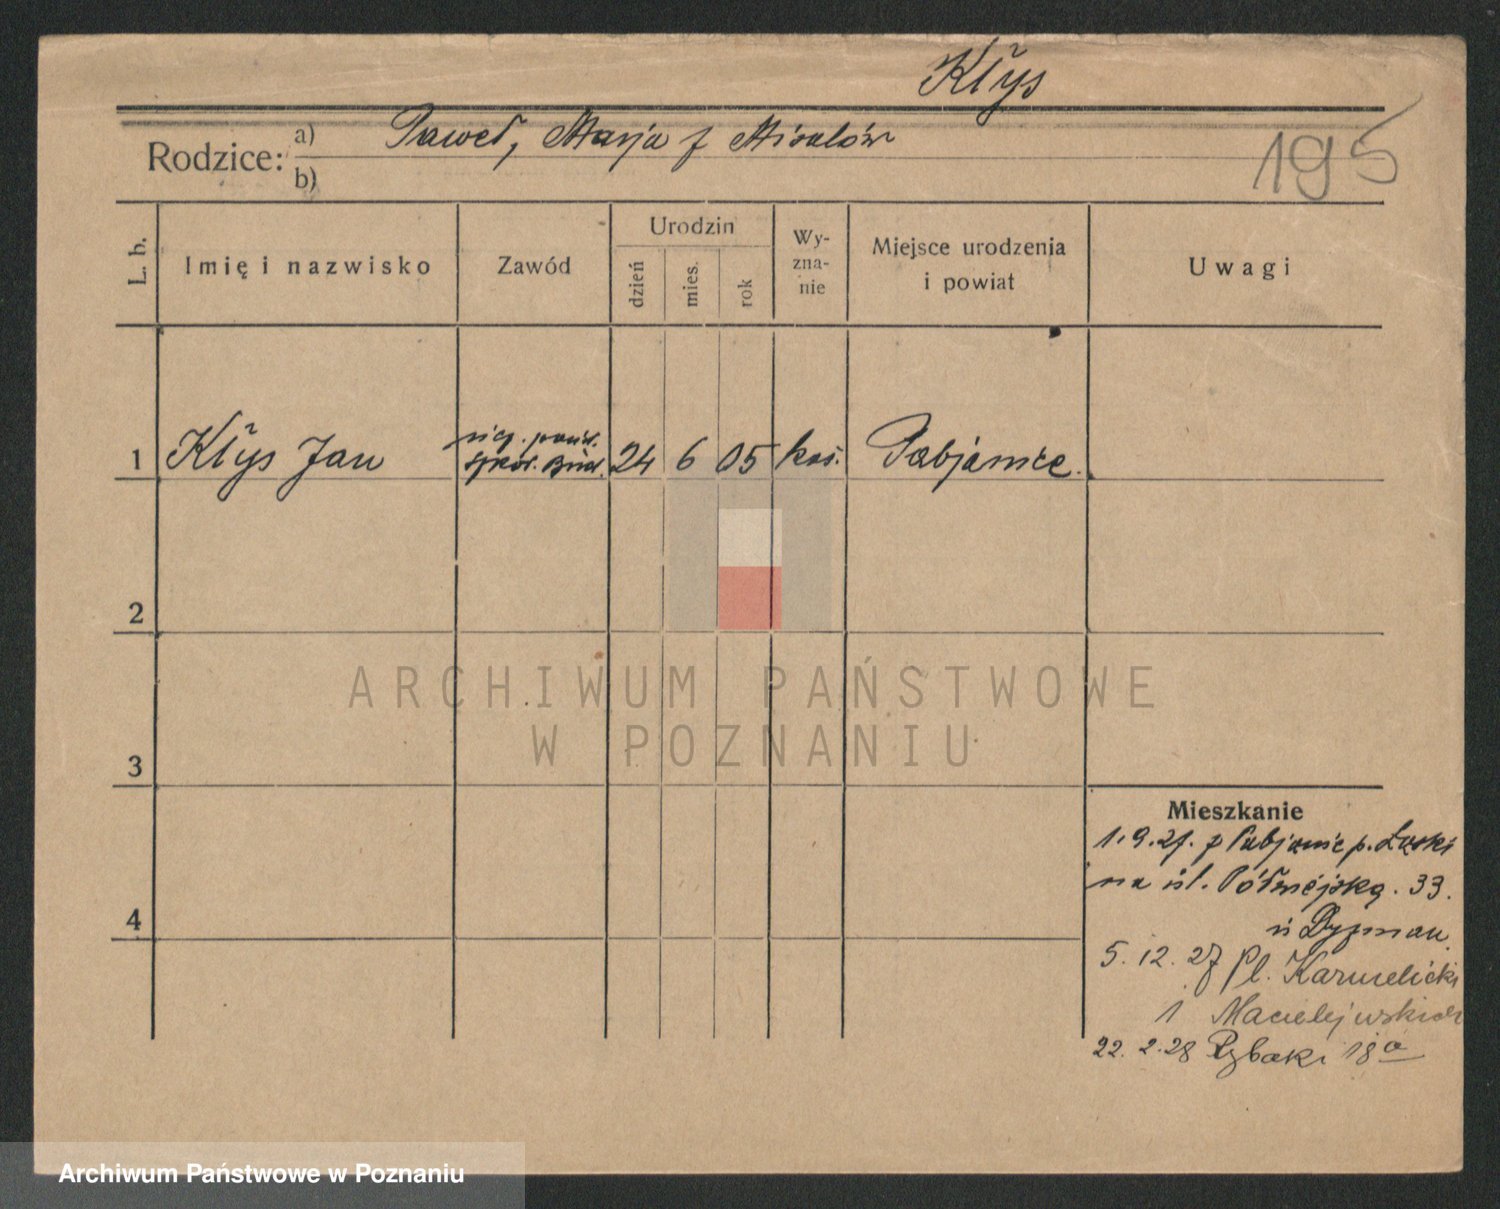 Kłys
Rodzice: a) Paweł, Marja z Misalów
b)
195
L. b.
Imię i nazwisko
Zawód
Urodzin
dzień
mies.
rok
Wy-
zna-
nie
Miejsce urodzenia
i powiat
Uwagi
1 Kłys Jan 24 6 05 kat. Pabjanice.
2
3
4
ARCHIWUM PAŃSTWOWE
W POZNANIU
Mieszkanie
1.9.27. z Pabjanic p. Łaski
na ul. Półwiejską. 33.
u Dyzman
5.12.27 Pl. Karmelicki
1 Maciejewskich
22.2.28 Rybaki 18a
Archiwum Państwowe w Poznaniu